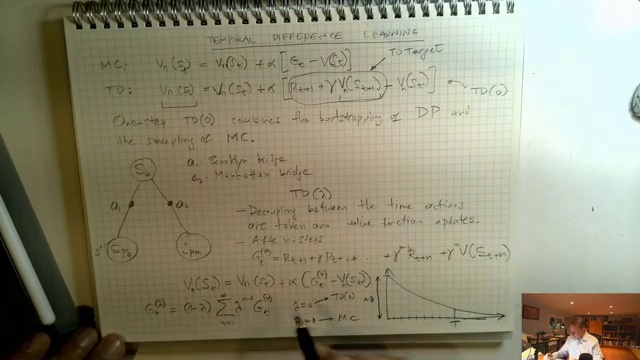 TEMPORAL DIFFERENCE LEARNING
MC: Vπ(St) = Vπ(St) + α [Gt − V(St)]
TD Target
TD: Vπ(St) = Vπ(St) + α [Rt+1 + γ Vπ(St+1) − Vπ(St)]
TD(0)
One-step TD(0) combines the bootstrapping of DP and
the sampling of MC.
S0
a1: Brooklyn bridge
a2: Manhattan bridge
a1
a2
TD(λ)
- Decoupling between the time actions
are taken and value function updates.
- After n-steps
Gt(n) = Rt+1 + γ Rt+2 + ... + γ Rt+n + γn V(St+n)
Vπ(St) = Vπ(St) + α (Gt(n) − Vπ(St))
Gt(λ) = (1-λ) Σ λn-1 Gt(n)
n=1
λ=0 → TD(0)
→ MC
1-λ
T